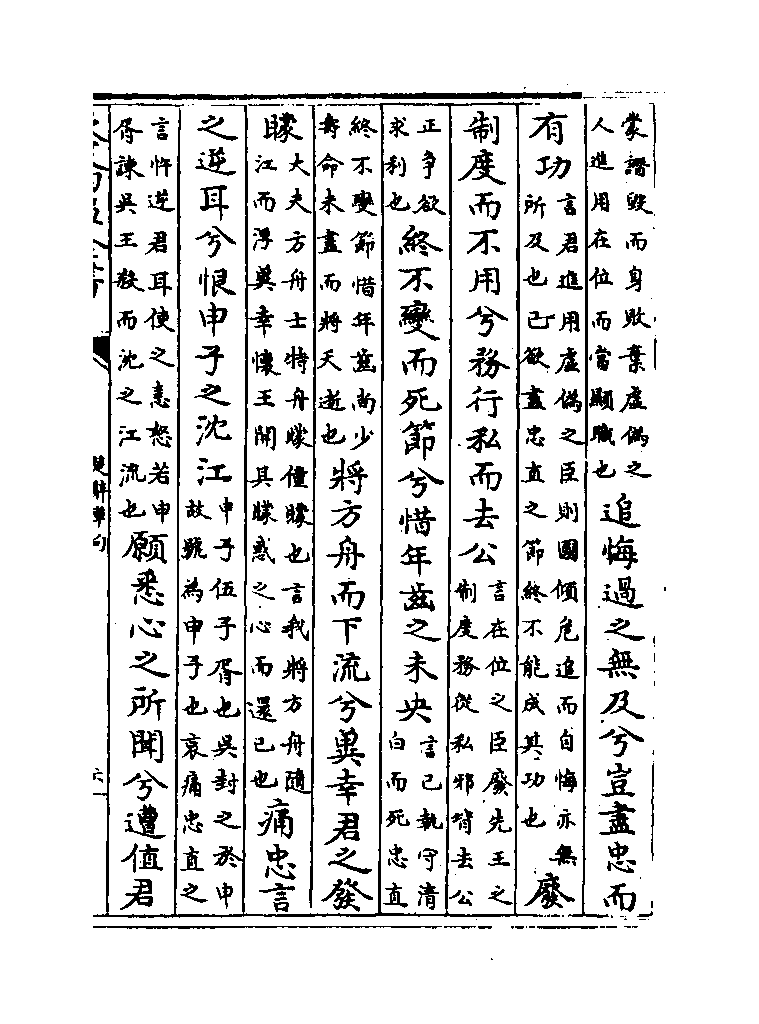 蒙譖毀而身敗棄虛偽之
人進用在位而當顯職也
追悔過之無及兮豈盡忠而
有功
言君進用虛偽之臣則國傾危追而自悔亦無
所及也已欲盡忠直之節終不能成其功也
廢
制度而不用兮務行私而去公
言在位之臣廢先王之
制度務從私邪背去公
正爭欲
求利也
終不變而死節兮惜年齒之未央
言己執守清
白而死忠直
終不變節惜年齒尚少
壽命未盡而將夭逝也
將方舟而下流兮冀幸君之發
矇
大夫方舟士特舟矇僮矇也言我將方舟隨
江而浮冀幸懷王開其矇惑之心而還己也
痛忠言
之逆耳兮恨申子之沈江
申子伍子胥也吳封之於申
故號為申子也哀痛忠直之
言忤逆君耳使之恚怒若申
胥諫吳王殺而沈之江流也
願悉心之所聞兮遭值君
楚辭章句
六